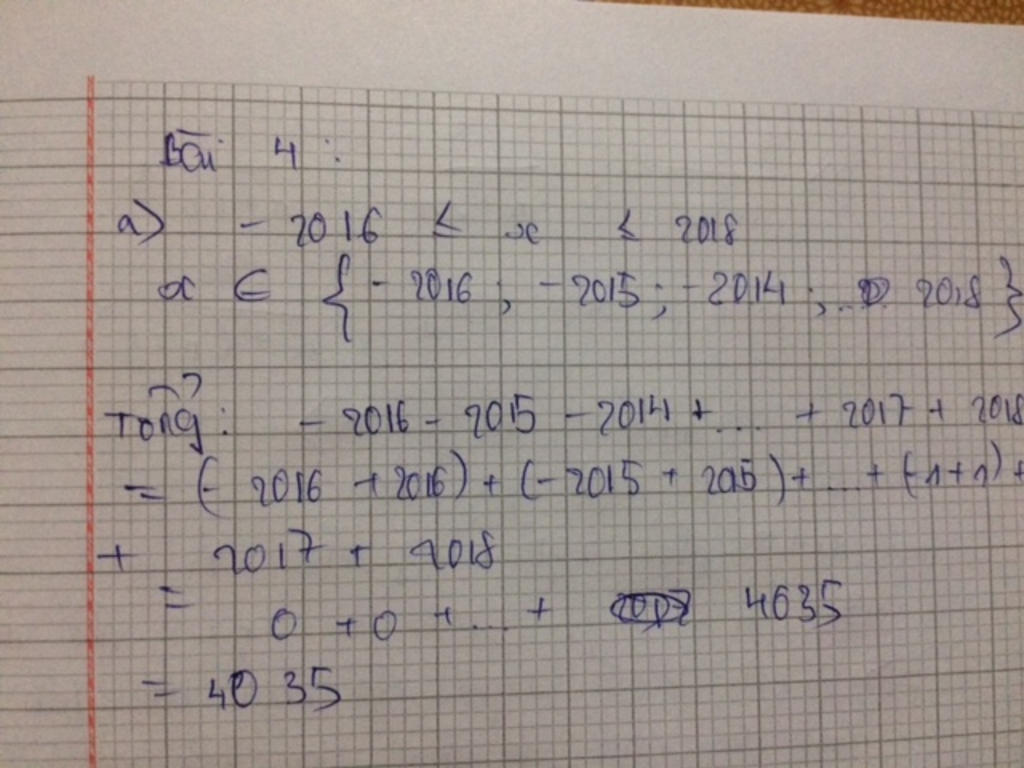 Bài 4 :
a) - 2016 ≤ x ≤ 2018
x ∈ { - 2016 ; - 2015 ; - 2014 ; ... 2018 }
Tổng : - 2016 - 2015 - 2014 + .... + 2017 + 2018
= (- 2016 + 2016) + (- 2015 + 2015) + .... + (-1+1) +
+ 2017 + 2018
= 0 + 0 + .... + 4035
= 4035